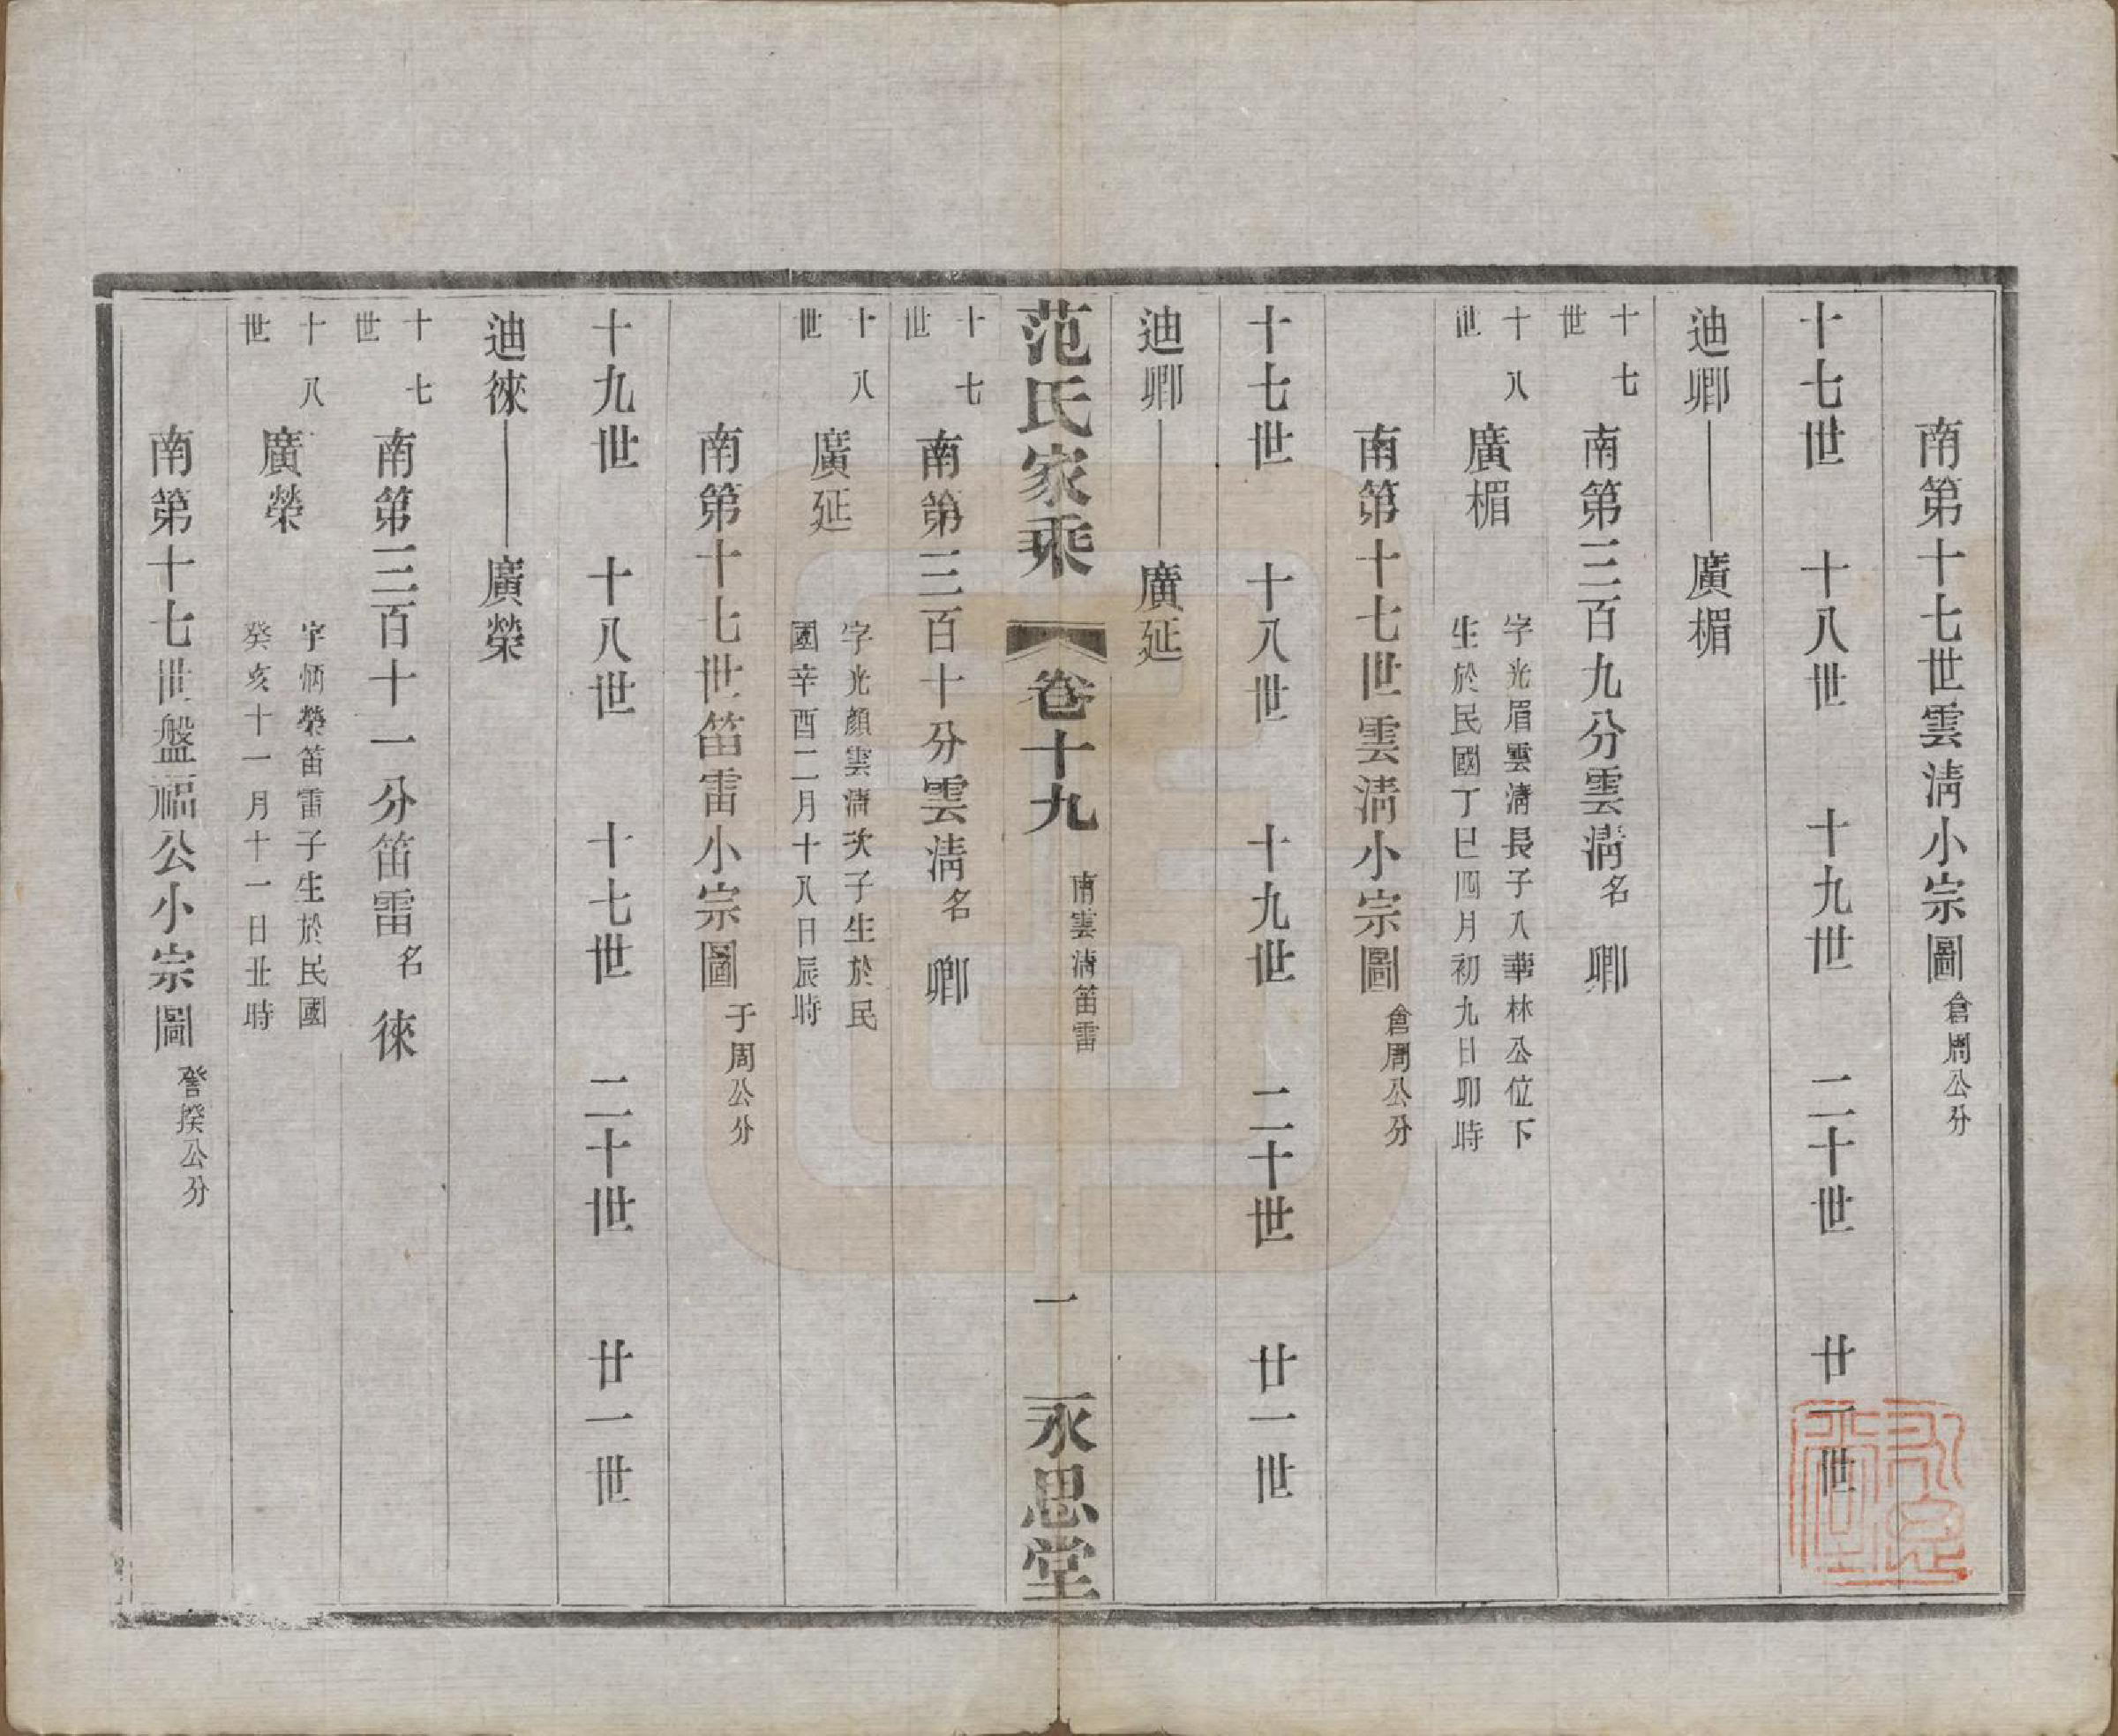 南第十七世雲淸小宗圖倉周公分
十七世　十八世　十九世　二十世　廿一世
迪卿——廣楣
十七世　南第三百九分雲淸名卿
十八世　廣楣　字光眉雲淸長子八華林公位下
生於民國丁巳四月初九日卯時
南第十七世雲淸小宗圖倉周公分
十七世　十八世　十九世　二十世　廿一世
迪卿——廣延
范氏家乘　卷十九　南雲淸笛雷　一　永思堂
十七世　南第三百十分雲淸名卿
十八世　廣延　字光顏雲淸次子生於民
國辛酉二月十八日辰時
南第十七世笛雷小宗圖于周公分
十九世　十八世　十七世　二十世　廿一世
迪徠——廣榮
十七世　南第三百十一分笛雷名徠
十八世　廣榮　字炳榮笛雷子生於民國
癸亥十一月十一日丑時
南第十七世盤福公小宗圖 揆公分